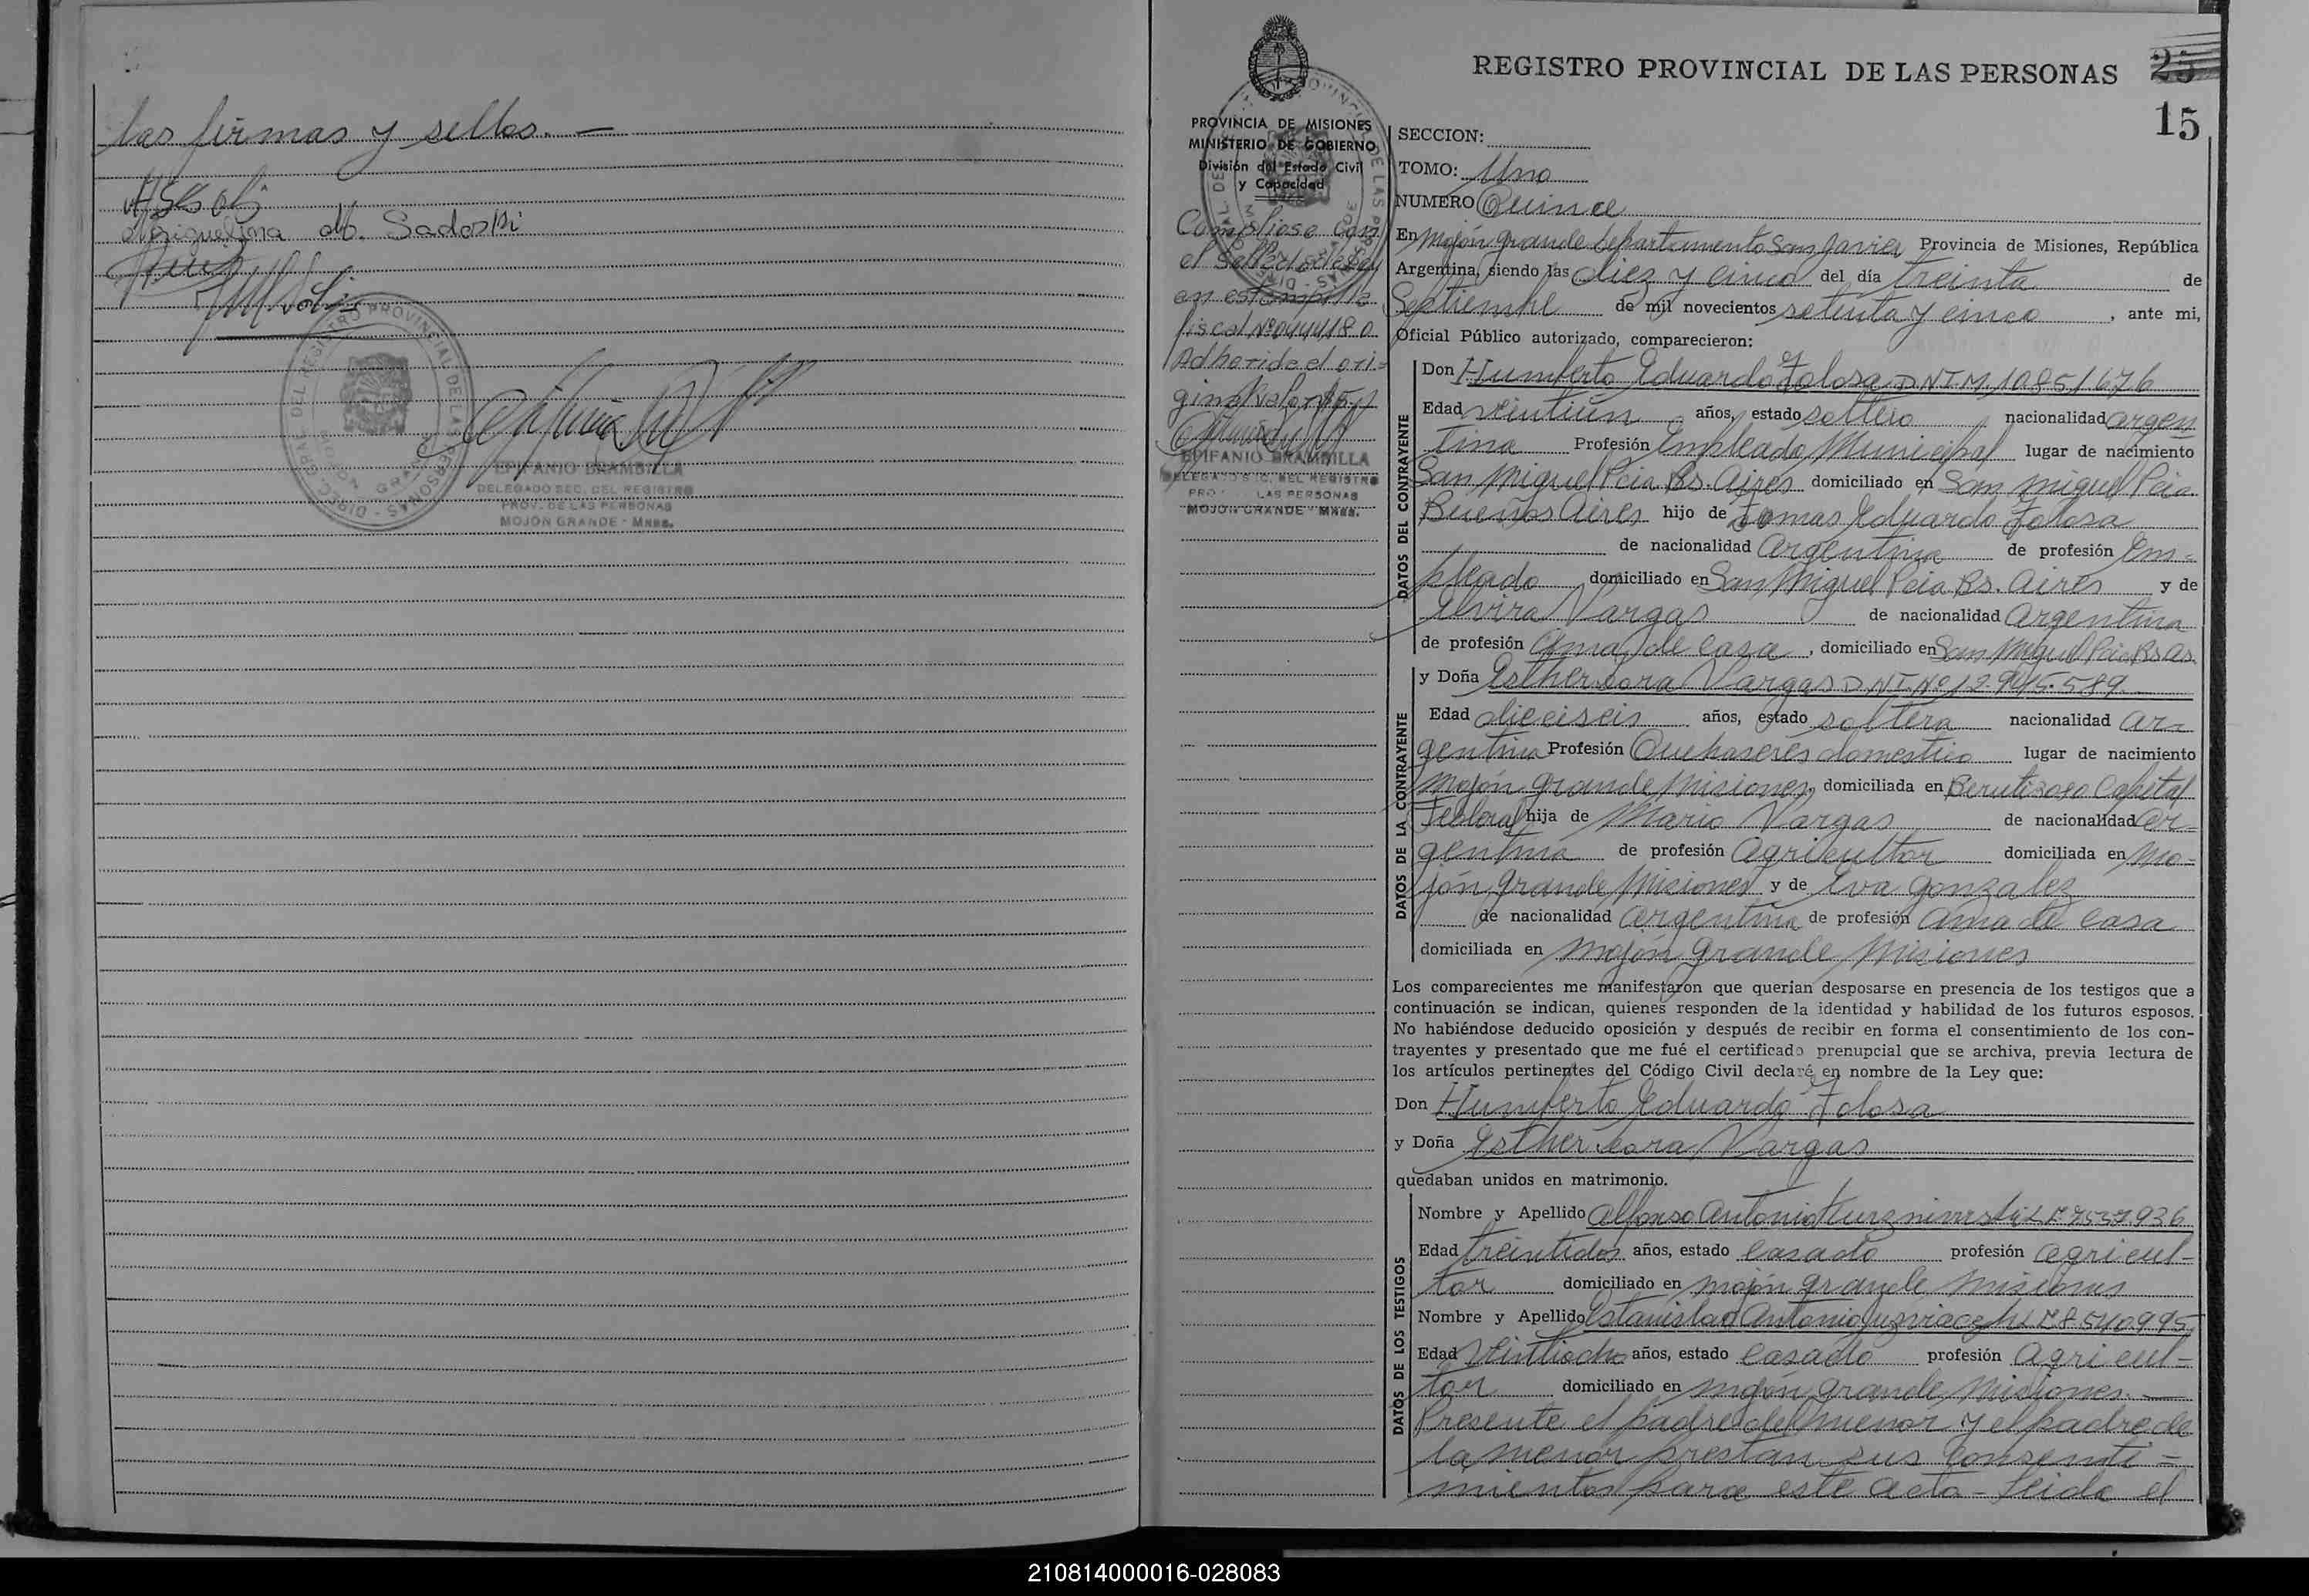 las firmas y sellos. —
M. Sadoski
REGISTRO PROVINCIAL DEL
DIREC. GRAL. DEL REGISTRO PROVINCIAL DE LAS PERSONAS
MOJON GRANDE
EPIFANIO BRAMBILLA
DELEGADO SEC. DEL REGISTRO
PROV. DE LAS PERSONAS
MOJON GRANDE - Mnes.
REGISTRO PROVINCIAL DE LAS PERSONAS
25
15
PROVINCIA DE MISIONES
MINISTERIO DE GOBIERNO
División del Estado Civil
y Capacidad
el
en estampilla
fiscal Nº 0444180
Adheride el ori-
ginal valor
EPIFANIO BRAMBILLA
DELEGADO SEC. DEL REGISTRO
PRO LAS PERSONAS
MOJON GRANDE - Mnes.
SECCION:
TOMO: Uno
NUMERO Quince
En Mojón Grande Departamento San Javier, Provincia de Misiones, República
Argentina, siendo las diez y cinco del día treinta de
Septiembre de mil novecientos setenta y cinco, ante mi,
Oficial Público autorizado, comparecieron:
DATOS DEL CONTRAYENTE
Don Humberto Eduardo Tolosa DNI.M. 10851676
Edad veintiún años, estado soltero nacionalidad argen
tina Profesión Empleado Municipal lugar de nacimiento
San Miguel Pcia Bs. Aires domiciliado en San Miguel Pcia.
Buenos Aires hijo de Tomas Eduardo Tolosa
de nacionalidad Argentina de profesión Em-
pleado domiciliado en San Miguel Pcia Bs. Aires y de
Elvira Vargas de nacionalidad Argentina
de profesión Ama de casa, domiciliado en San Miguel Pcia Bs As.
DATOS DE LA CONTRAYENTE
y Doña Esther Vargas DNI. Nº 12.945.589
Edad dieciseis años, estado soltera nacionalidad Ar-
gentina Profesión Quehaseres domestico lugar de nacimiento
Mojón Grande Misiones, domiciliada en Beruti Capital
Federal hija de Mario Vargas de nacionalidad Ar-
gentina de profesión Agricultor domiciliada en Mo-
jón Grande Misiones y de Eva Gonzalez
de nacionalidad Argentina de profesión Ama de casa
domiciliada en Mojón Grande Misiones
Los comparecientes me manifestaron que querian desposarse en presencia de los testigos que a
continuación se indican, quienes responden de la identidad y habilidad de los futuros esposos.
No habiéndose deducido oposición y después de recibir en forma el consentimiento de los con-
trayentes y presentado que me fué el certificado prenupcial que se archiva, previa lectura de
los artículos pertinentes del Código Civil declaré en nombre de la Ley que:
Don Humberto Eduardo Tolosa
y Doña Esther Vargas
quedaban unidos en matrimonio.
DATOS DE LOS TESTIGOS
Nombre y Apellido Alfonso Antonio L.E 7537.936
Edad treintidos años, estado casado profesión agricul-
tor domiciliado en Mojón Grande Misiones
Nombre y Apellido Estanislao Antonio L.E 8540995
Edad veintiocho años, estado casado profesión agricul-
tor domiciliado en Mojón Grande Misiones. —
Presente el padre del menor y el padre de
la menor prestan sus consenti-
mientos para este acto - Leida el
210814000016-028083